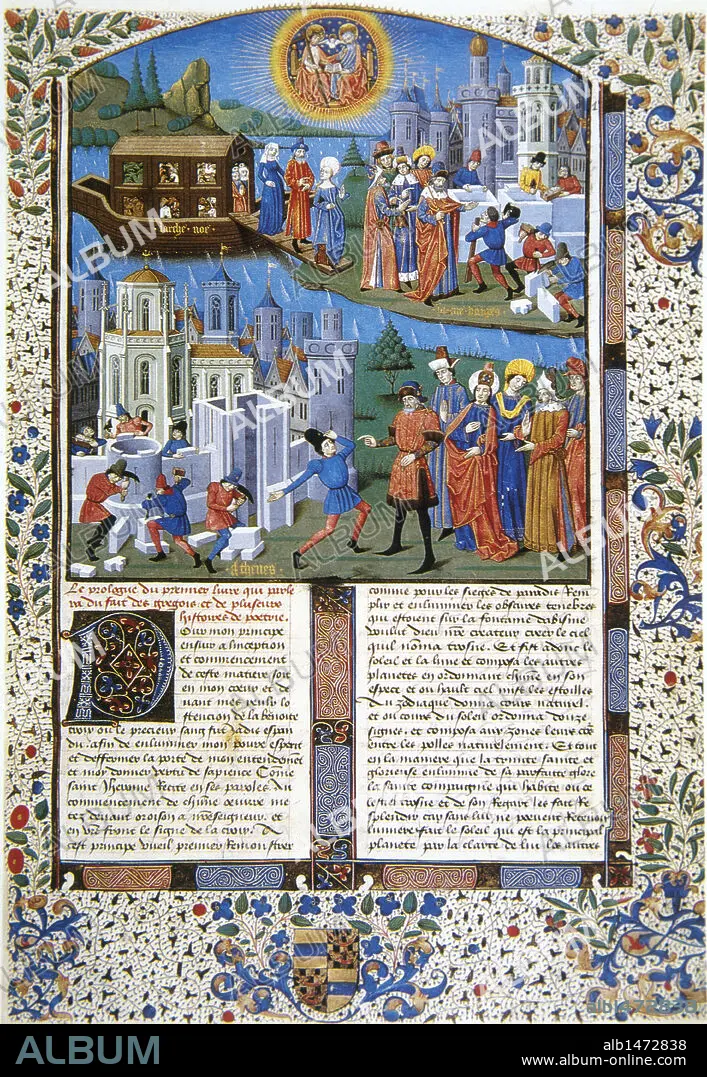 larche noe
Athenes
Le prologue du premier livre qui parle
va du fait des gregois et de pluseurs
histoires de poetrie
Pour mon principe
ensuir a linception
et commencement
de ceste matiere soit
en mon cueur
tencion de la benoite
croix ou le precieux sang fut
du afin de enluminer mon povre esperit
et deffermer la porte de mon entendement
et moy donner vertu de sapience Come
saint Jherome Recite en ses paroles du
commencement de chune oeuvre me
etz devant oroison a nostre seigneur et
en vre front le signe de la croix Et
cest principe vueil premier Remonstrer
comme pour les sieges de paradis Rem
plir et enluminer les obscures tenebres
qui estoient sur la fontaine dabisme
voulut dieu nre createur creer le ciel
quil nomma trosne Et fist adonc le
soleil et la lune et composa les autres
planetes en ordonnant chun en son
espere et ou hault coron mist les estoilles
du zodiaque dont le cours naturel
et ou cours du soleil ordonna douze
signes et composa
les polles naturelement Et tout
en la maniere que la trinite sainte et
glorieuse enlumine de sa parfaite gloire
la sainte compaignie qui habite ou ce
leste trosne et de son Regart les fait Re
splendir car sans lui ne pevent Recevoir
lumiere fait le soleil qui est la principal
planete par la clarte de lui les autres
ALBUM
alb1472838
www.album-online.com